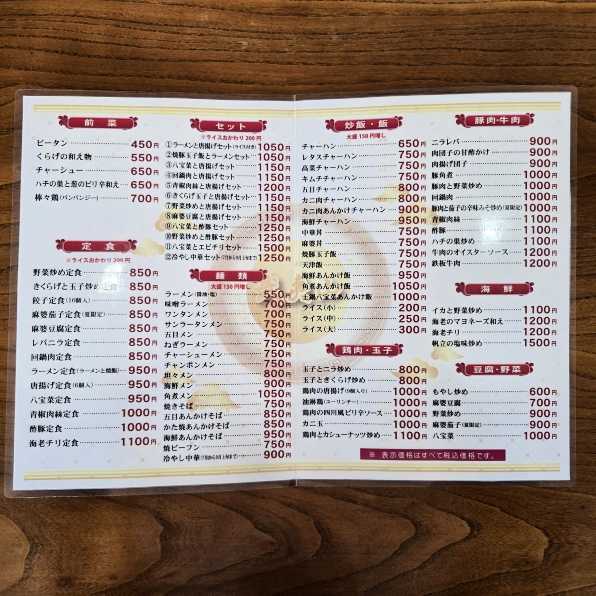 前菜
ピータン 450円
くらげの和え物 550円
チャーシュー 650円
ハチの巣と葱のピリ辛和え 650円
棒々鶏(バンバンジー) 700円
定食
※ライスおかわり200円
野菜炒め定食 850円
きくらげと玉子炒め定食 850円
餃子定食(10個入) 850円
麻婆茄子定食(夏限定) 850円
麻婆豆腐定食 850円
レバニラ定食 850円
回鍋肉定食 850円
ラーメン定食(ラーメンと焼飯) 950円
唐揚げ定食(6個入) 950円
八宝菜定食 950円
青椒肉絲定食 1000円
酢豚定食 1000円
海老チリ定食 1100円
セット
※ライスおかわり200円
①ラーメンと唐揚げセット 1050円
②焼豚玉子飯とラーメンセット 1050円
③八宝菜と唐揚げセット 1150円
④回鍋肉と唐揚げセット 1150円
⑤青椒肉絲と唐揚げセット 1200円
⑥きくらげ玉子と唐揚げセット 1150円
⑦野菜炒めと唐揚げセット 1150円
⑧麻婆豆腐と唐揚げセット 1150円
⑨野菜炒めと酢豚セット 1250円
⑩麻婆豆腐と酢豚セット 1250円
⑪八宝菜とエビチリセット 1250円
⑫冷やし中華セット 1250円
麺類
大盛150円増し
ラーメン(醤油・塩) 550円
味噌ラーメン 700円
ワンタンメン 700円
サンラータンメン 750円
五目メン 750円
ねぎラーメン 750円
チャーシューメン 750円
チャンポンメン 750円
坦々メン 800円
海鮮メン 900円
角煮メン 1050円
焼きそば 750円
五目あんかけそば 850円
かた焼あんかけそば 850円
海鮮あんかけそば 950円
焼ビーフン 750円
冷やし中華 900円
炒飯・飯
大盛150円増し
チャーハン 650円
レタスチャーハン 750円
高菜チャーハン 750円
キムチチャーハン 750円
五目チャーハン 800円
カニ肉チャーハン 800円
カニ肉あんかけチャーハン 900円
海鮮チャーハン 950円
中華丼 750円
麻婆丼 750円
焼豚玉子飯 750円
天津飯 750円
海鮮あんかけ飯 950円
角煮あんかけ飯 1050円
土鍋八宝菜あんかけ飯 1000円
ライス(小) 200円
ライス(中) 250円
ライス(大) 300円
鶏肉・玉子
玉子とニラ炒め 800円
玉子ときくらげ炒め 800円
鶏肉の唐揚げ 900円
油淋鶏(ユーリンチー) 1000円
鶏肉の四川風ピリ辛ソース 1000円
カニ玉 1000円
鶏肉とカシューナッツ炒め 1100円
豚肉・牛肉
ニラレバ 900円
肉団子の甘酢かけ 900円
肉揚げ団子 900円
豚角煮 1000円
豚肉と野菜炒め 1000円
回鍋肉 1000円
豚肉と茄子の辛味みそ炒め(夏限定) 1000円
青椒肉絲 1100円
酢豚 1100円
ハチの巣炒め 1100円
牛肉のオイスターソース 1200円
鉄板牛肉 1200円
海鮮
イカと野菜炒め 1100円
海老のマヨネーズ和え 1200円
海老チリ 1200円
帆立の塩味炒め 1500円
豆腐・野菜
もやし炒め 600円
麻婆豆腐 700円
野菜炒め 900円
麻婆茄子(夏限定) 900円
八宝菜 1000円
※ 表示価格はすべて税込価格です。